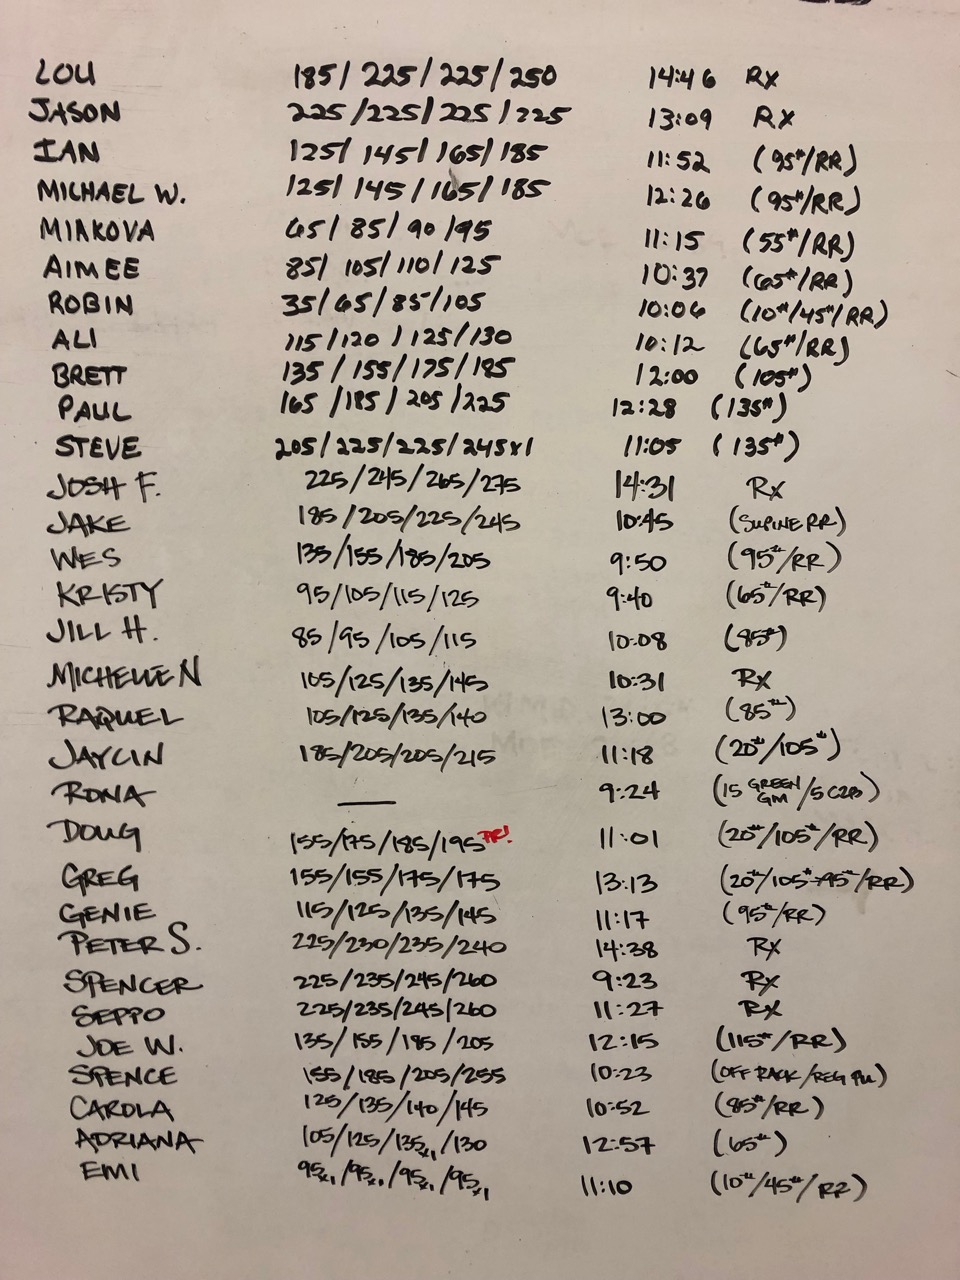 LOU 185/ 225/ 225/ 250 14:46 RX
JASON 225/225/225/225 13:09 RX
IAN 125/ 145/ 165/ 185 11:52 (95#/RR)
MICHAEL W. 125/ 145/ 165/ 185 12:26 (95#/RR)
MINKOVA 65/ 85/ 90/95 11:15 (55#/RR)
AIMEE 85/ 105/110/125 10:37 (65#/RR)
ROBIN 35/65/85/105 10:06 (10#/45#/RR)
ALI 115/120/125/130 10:12 (65#/RR)
BRETT 135/155/175/185 12:00 (105#)
PAUL 165/185/205/225 12:28 (135#)
STEVE 205/225/225/245x1 11:05 (135#)
JOSH F. 225/245/265/275 14:31 Rx
JAKE 185/205/225/245 10:45 (SUPINE RR)
WES 135/155/185/205 9:50 (95#/RR)
KRISTY 95/105/115/125 9:40 (65#/RR)
JILL H. 85/95/105/115 10:08 (85#)
MICHELLE N 105/125/135/145 10:31 Rx
RAQUEL 105/125/135/140 13:00 (85#)
JAYLIN 185/205/205/215 11:18 (20#/105#)
RONA — 9:24 (15 GREEN GM/5 C2B)
DOUG 155/175/185/195 PR! 11:01 (20#/105#/RR)
GREG 155/155/175/175 13:13 (20#/105#-95#/RR)
GENIE 115/125/135/145 11:17 (95#/RR)
PETER S. 225/230/235/240 14:38 Rx
SPENCER 225/235/245/260 9:23 Rx
SEPPO 225/235/245/260 11:27 Rx
JOE W. 135/155/185/205 12:15 (115#/RR)
SPENCE 155/185/205/255 10:23 (OFF RACK/REG PU)
CAROLA 125/135/140/145 10:52 (85#/RR)
ADRIANA 105/125/135x1/130 12:57 (65#)
EMI 95x1/95x1/95x1/95x1 11:10 (10#/45#/RR)